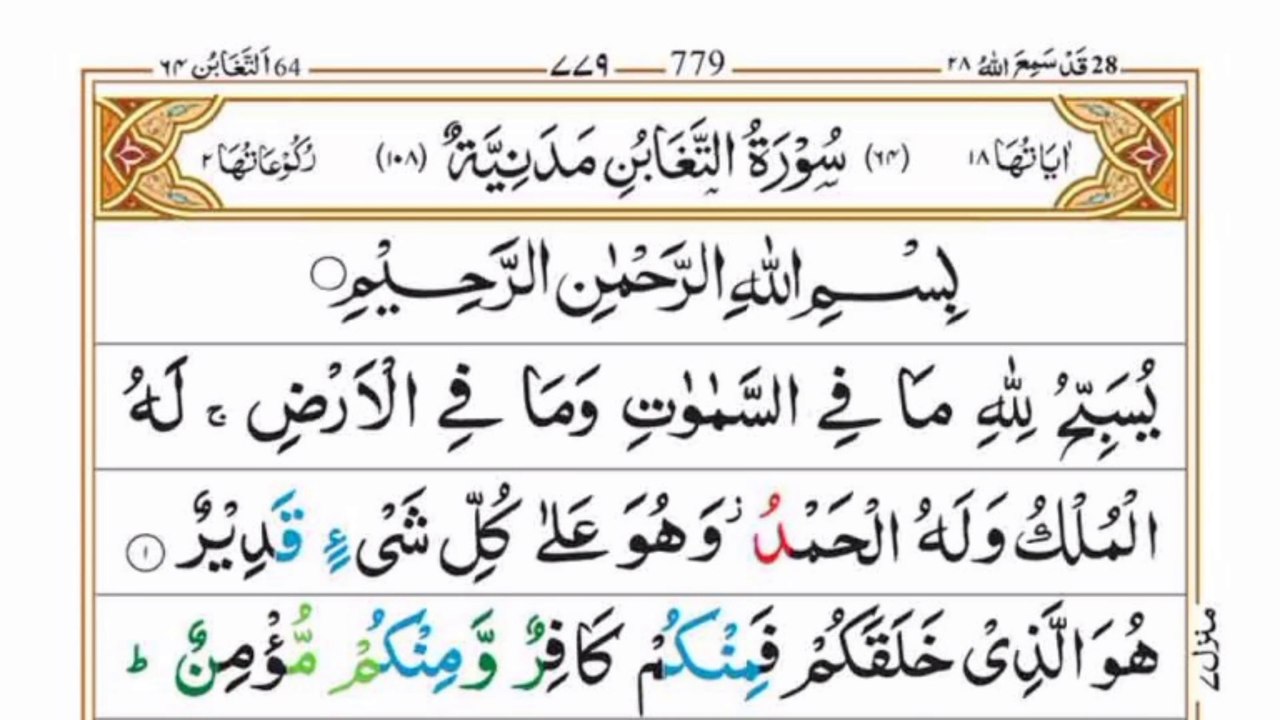 28 قَدْ سَمِعَ اللّٰهُ ٢٨ 779 ٧٧٩ 64 اَلتَّغَابُن ٦٤
اٰيَاتُهَا ١٨ (٦٤) سُوْرَةُ التَّغَابُنِ مَدَنِيَّةٌ (١٠٨) رُكُوْعَاتُهَا ٢
بِسْمِ اللّٰهِ الرَّحْمٰنِ الرَّحِيْمِ
يُسَبِّحُ لِلّٰهِ مَا فِي السَّمٰوٰتِ وَمَا فِي الْاَرْضِ ۚ لَهُ
الْمُلْكُ وَلَهُ الْحَمْدُ ز وَهُوَ عَلٰى كُلِّ شَىْءٍ قَدِيْرٌ ١
هُوَ الَّذِىْ خَلَقَكُمْ فَمِنْكُمْ كَافِرٌ وَّمِنْكُمْ مُّؤْمِنٌ ط
منزل ٧